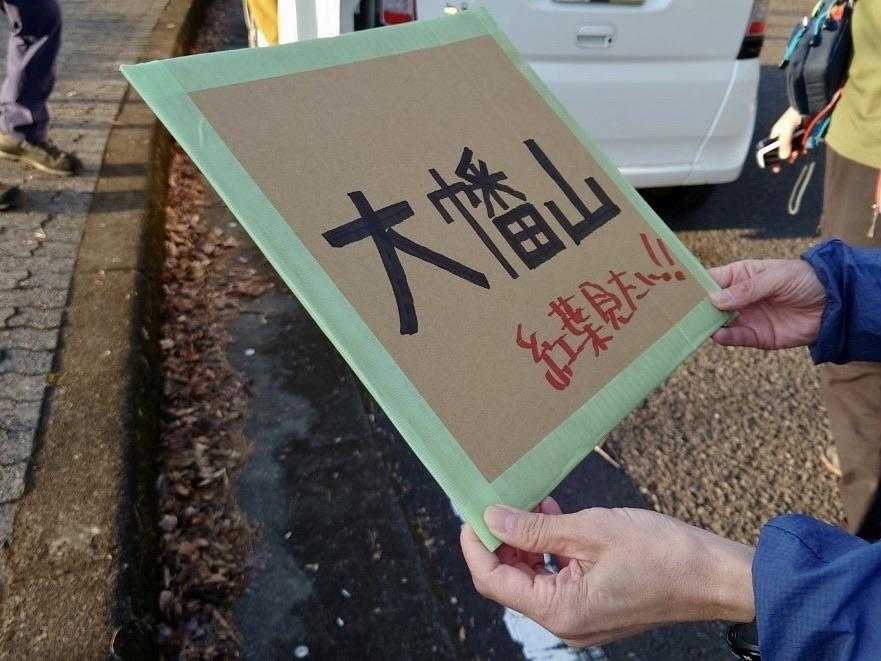 大幡山
紅葉見たい!!